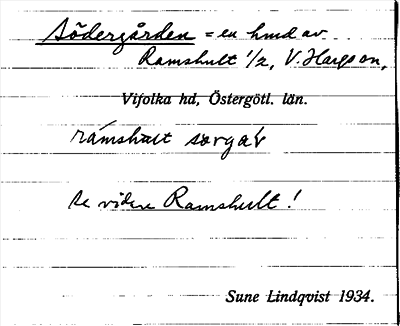 Södergården = en hmd av
Ramshult 1/2, V. Harg sn,
Vifolka hd, Östergötl. län.
rámshult
se vidare Ramshult!
Sune Lindqvist 1934.